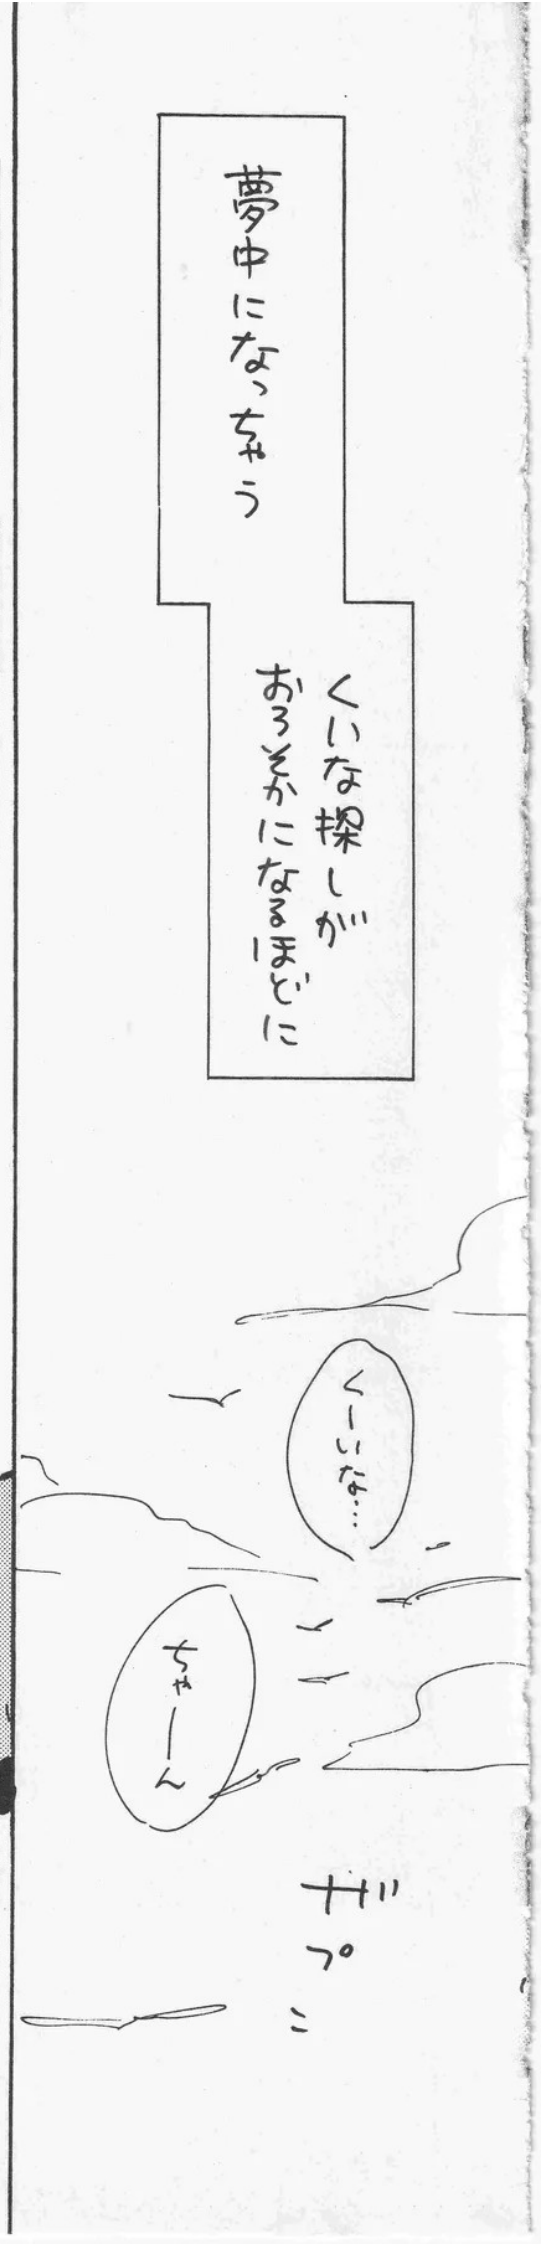 くいな探しが
おろそかになるほどに
夢中になっちゃう
くーいな…
ちゃーん
ザプ